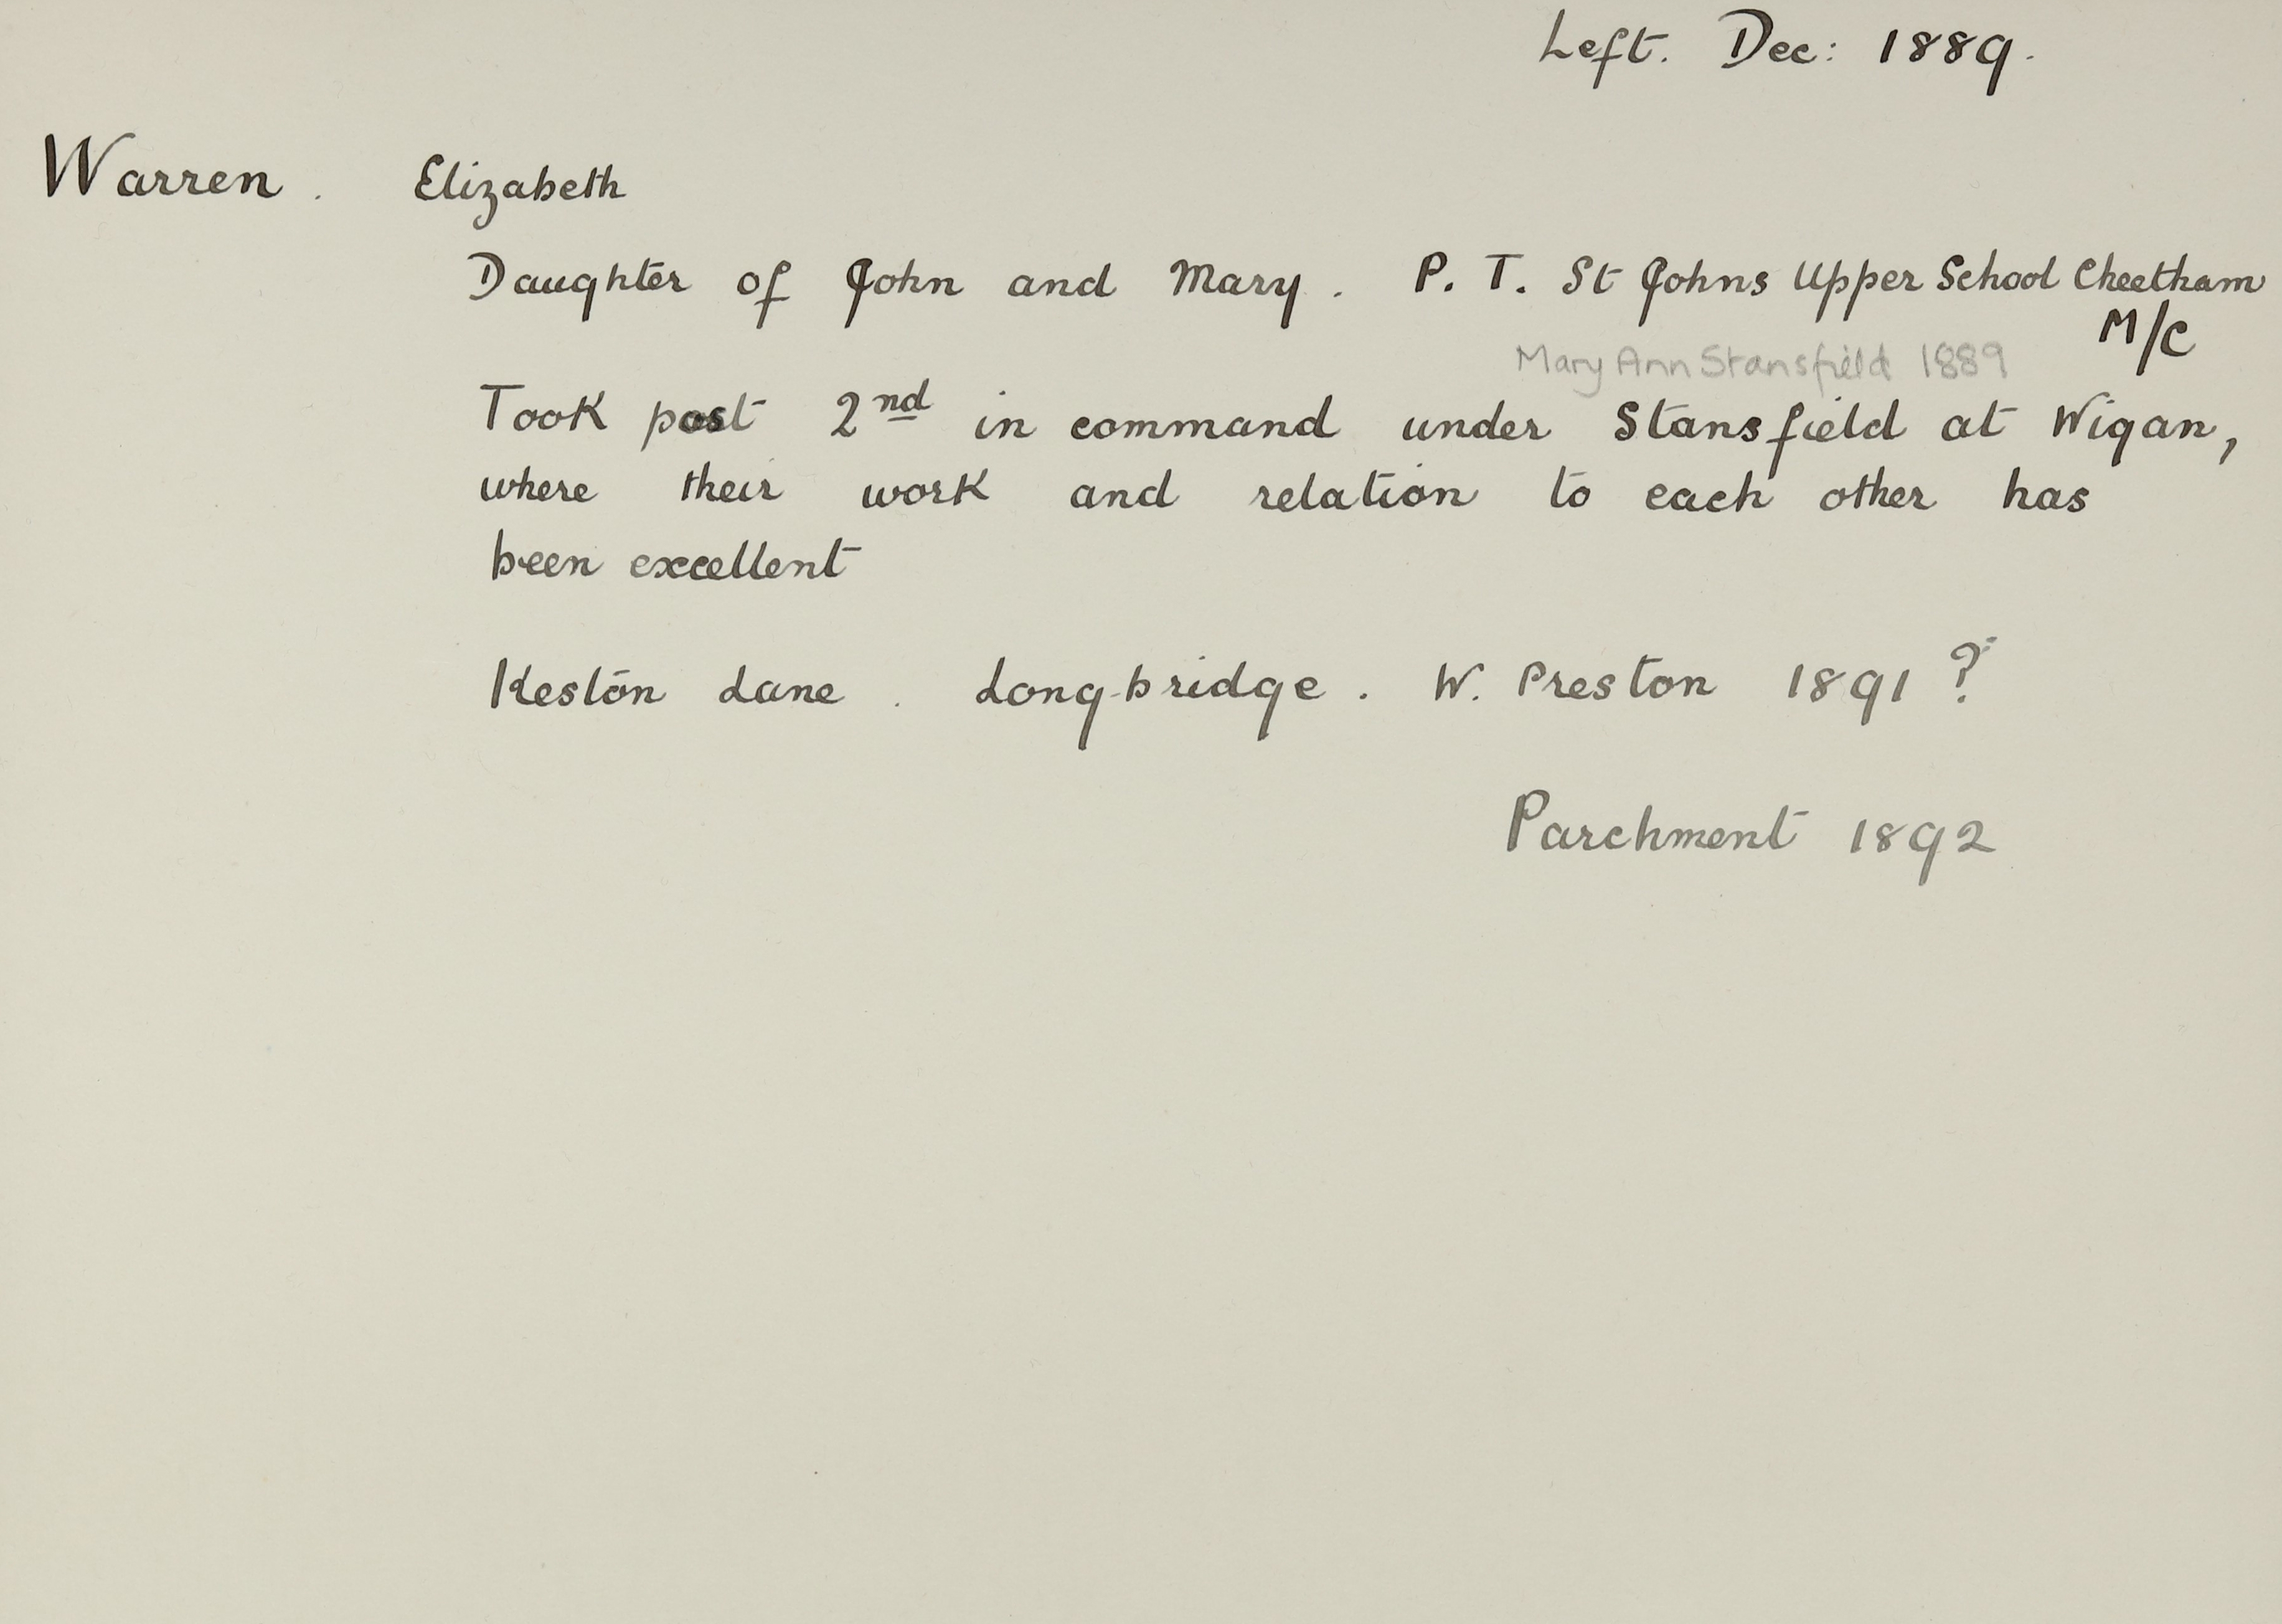 Left. Dec: 1889.
Warren. Elizabeth
Daughter of John and Mary. P. T. St Johns Upper School Cheetham
M/C
Mary Ann Stansfield 1889
Took post 2nd in command under Stansfield at Wigan,
where their work and relation to each other has
been excellent
Keston Lane. Long-bridge. W. Preston 1891 ?
Parchment 1892